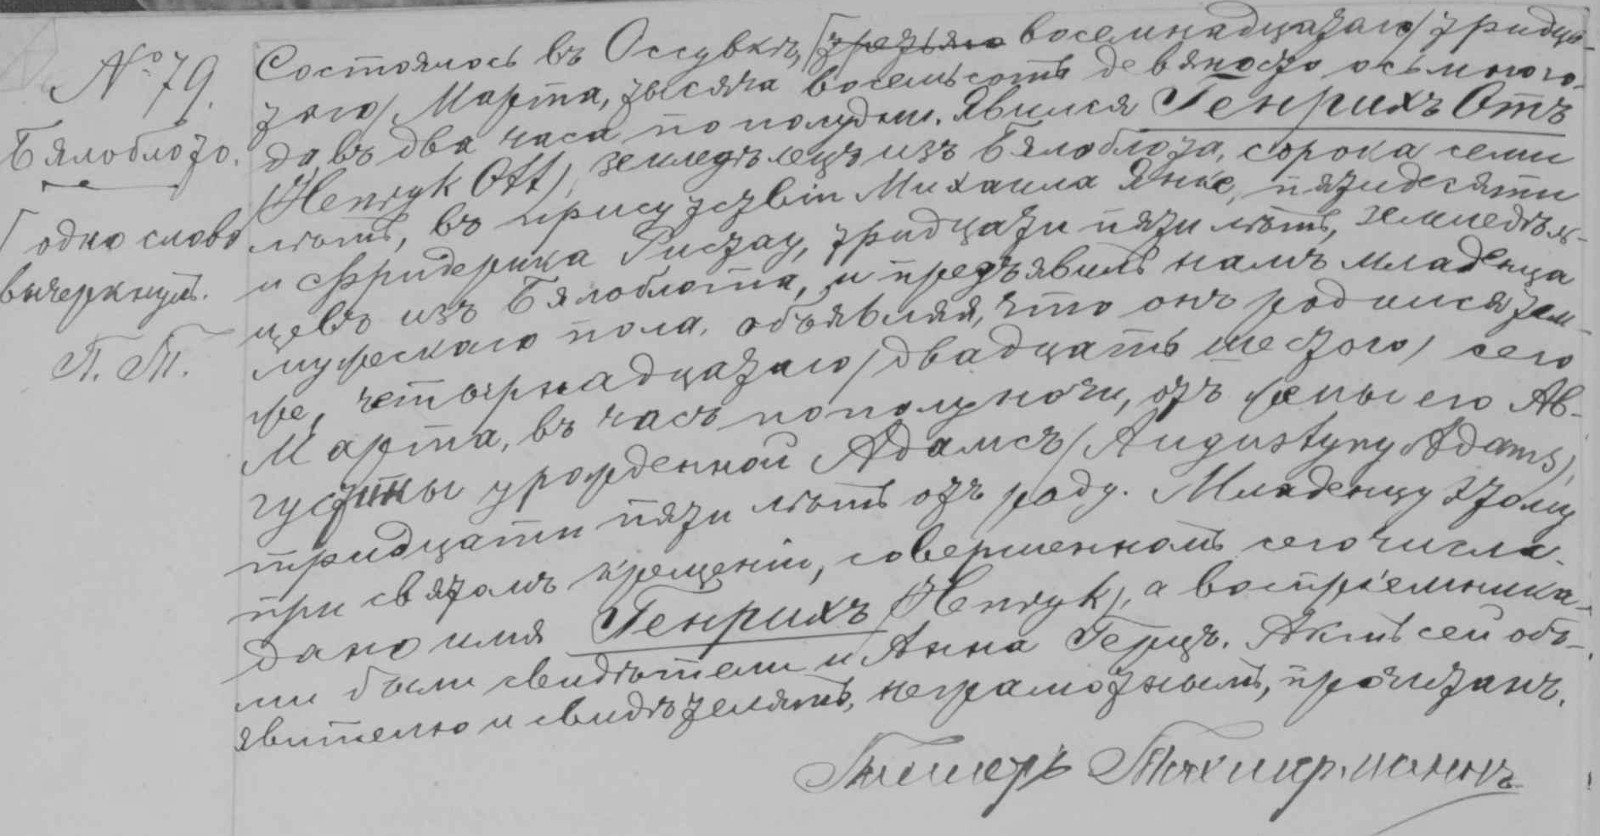 № 79.
Бялоблото.
[одно слово
вычеркнуть.
П. Т.
Состоялось въ Оссувкѣ, [третьяго восемнадцатаго/тридца-
таго/ Марта, тысяча восемьсотъ девяносто осьмого го-
да въ два часа по полудни. Явился Генрихъ Отъ
/Henryk Ott/, земледѣлецъ изъ Бялоблота, сорока семи
лѣтъ, въ присутствіи Михаила Янке, пятидесяти
и Фридерика Рисtau, тридцати пяти лѣтъ, земледѣль-
цевъ изъ Бялоблота, и предъявилъ намъ младенца
мужескаго пола, объявляя, что онъ родился там-
же, четырнадцатаго/двадцать шестого/ сего
Марта, въ часъ по полуночи, отъ жены его Ав-
густины урожденной Адамсъ /Augustyny Adams/,
тридцати пяти лѣтъ отъ роду. Младенцу этому
при святомъ крещеніи, совершенномъ сего числа
дано имя Генрихъ /Henryk/, а воспріемника-
ми были свидѣтели и Анна Герцъ. Актъ сей объ-
явителю и свидѣтелямъ, неграмотнымъ, прочитанъ.